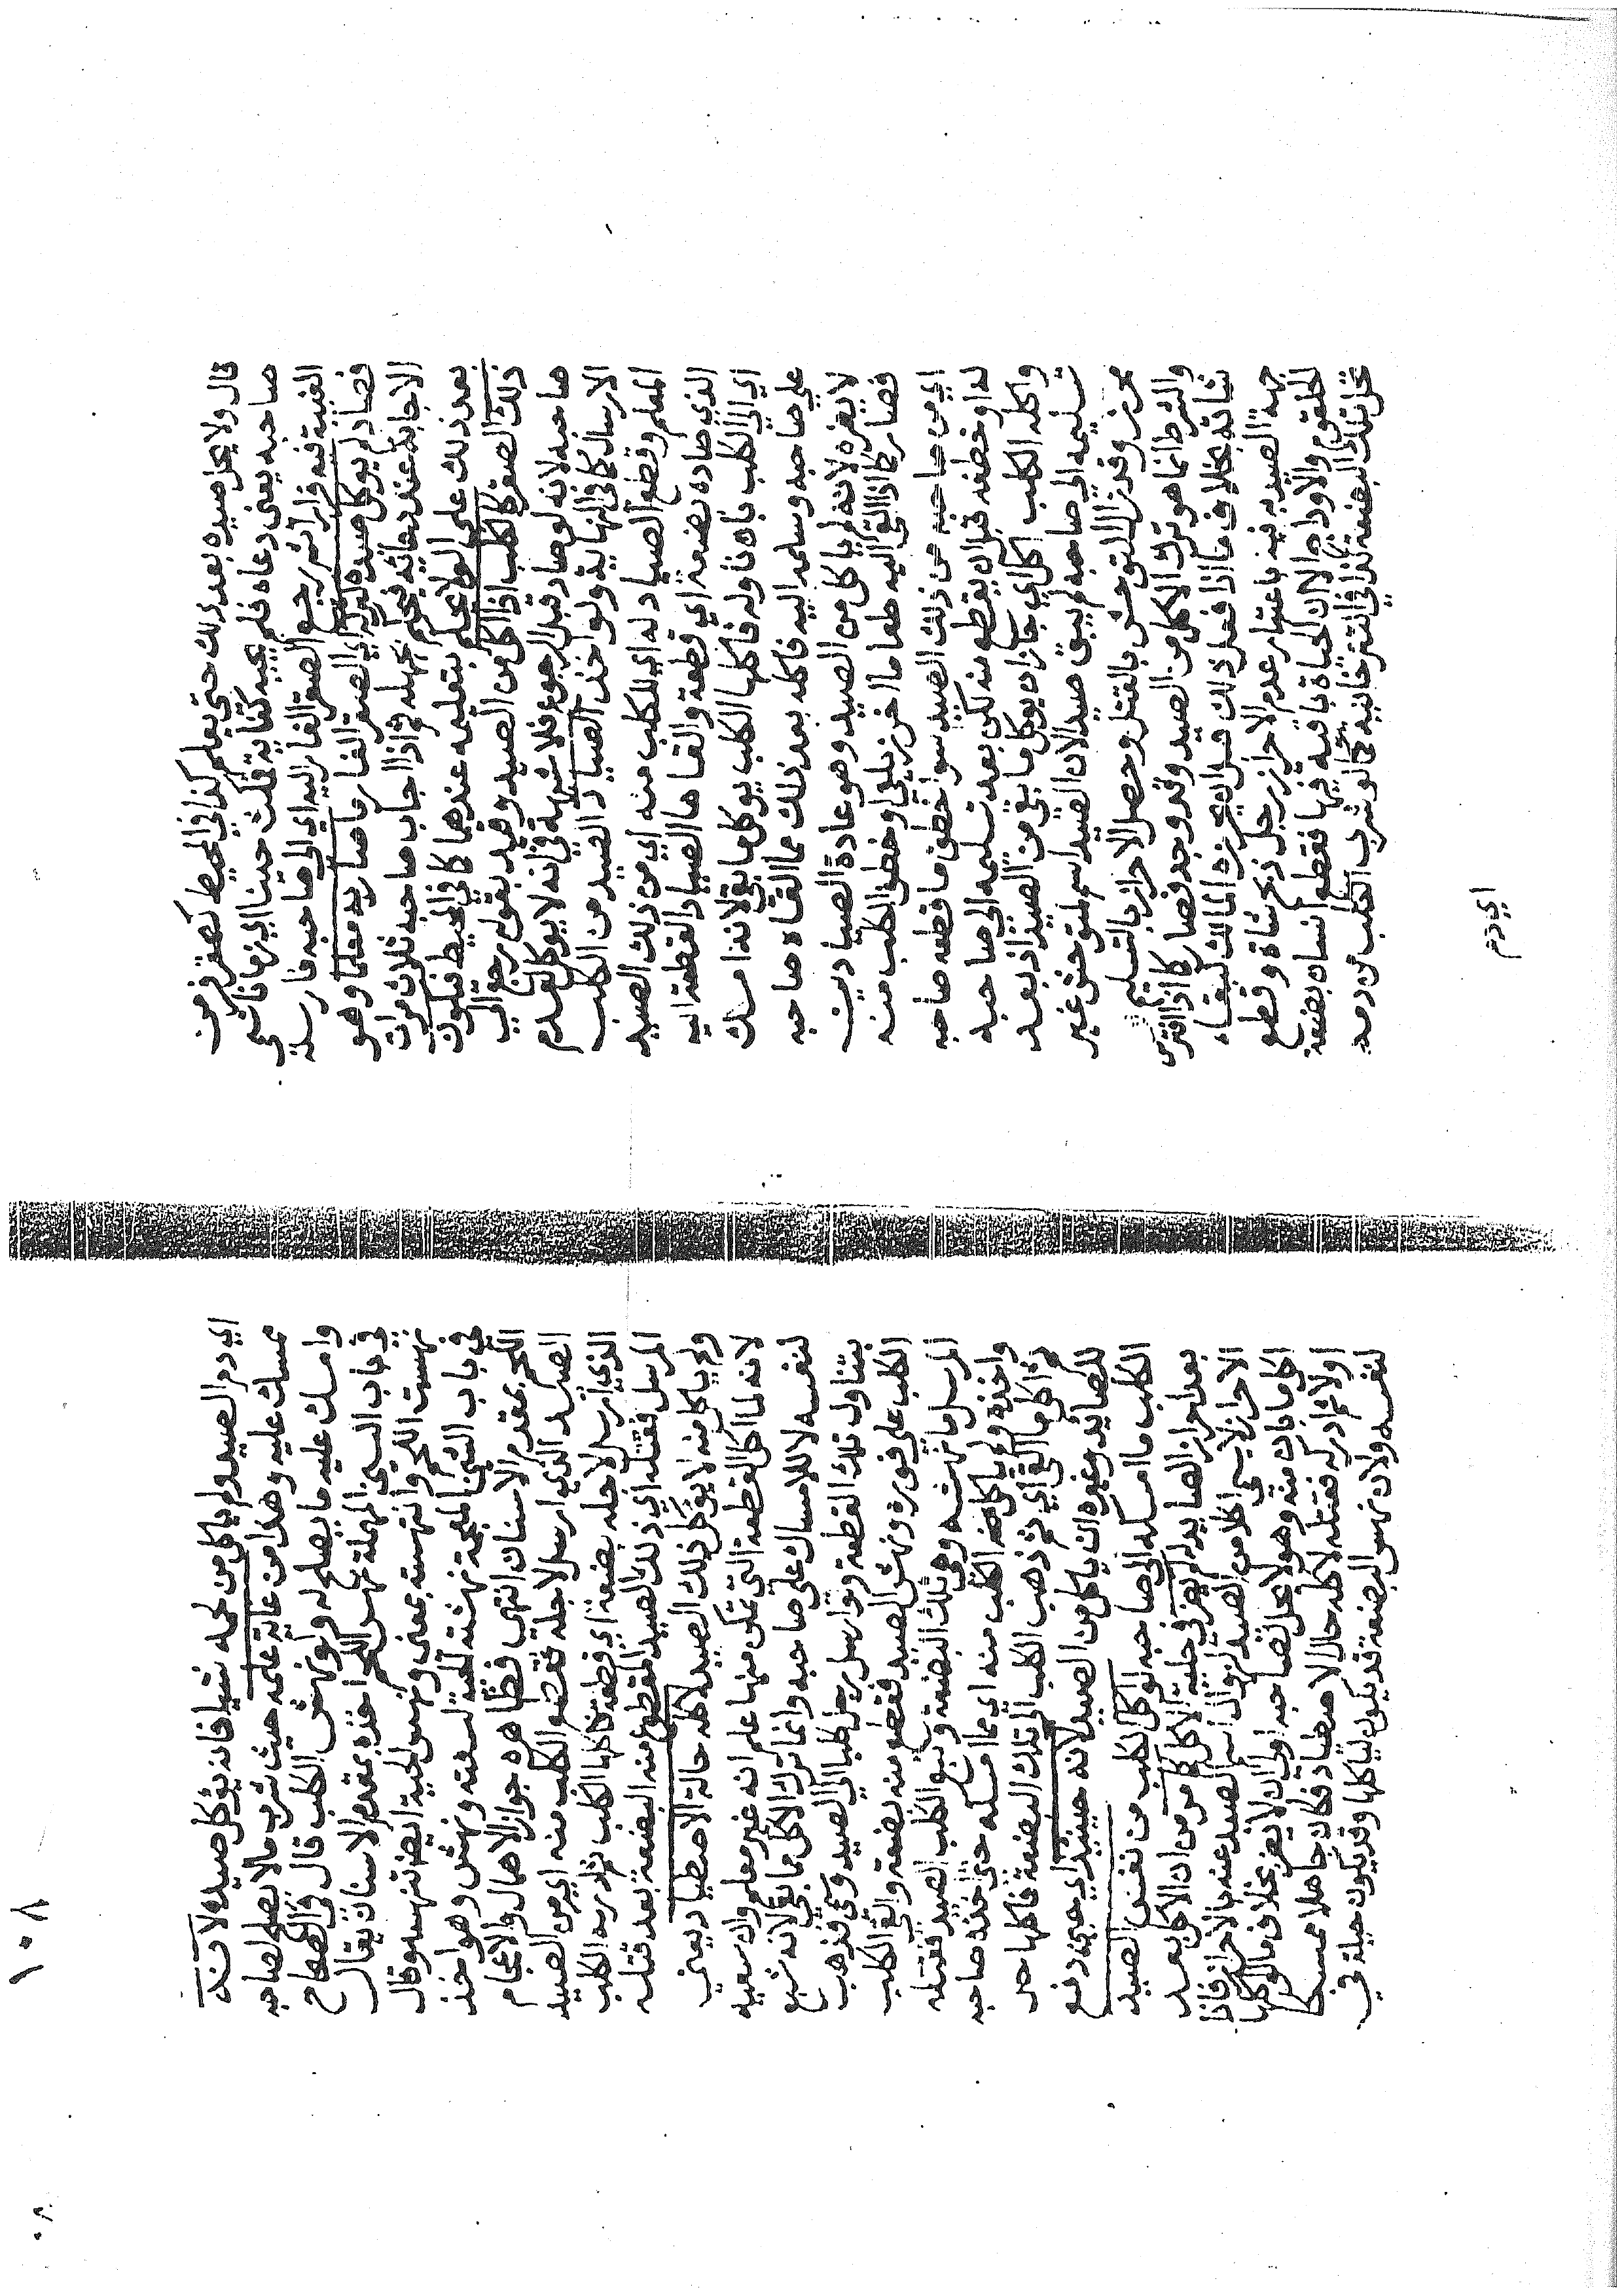 قال ولا يحل صيده بعد ذلك حتى يعلم كذا في المحيط كصقر فر من
صاحبه يعني دعاه فلم يجبه كفاية فمكث حينا اي زمانا في
الغيبة فيه فرارا ثم رجع الصقر الفار اليه اي الى صاحبه فارسله
فصاد لم يوكل صيده لترك اي الصقر الفار ما صار به معلما وهو
الاجابة عند دعائه فيحكم بجهله ثم اذا اجاب صاحبه ثلاث مرات
بعد ذلك على الولا يحكم بتعليمه عندهما كما في المحيط فيكون
ذلك الصقر كالكلب اذا اكل من الصيد وقيد بقوله رجع الى
صاحبه لانه لو صاد قبل الرجوع فلا شبهة في انه لا يوكل لعدم
الارسال كما في النهاية ولو اخذ الصياد الصيد من الكلب
المعلم وقطع الصياد له اي للكلب منه اي من ذلك الصيد
الذي صاده بضعة اي قطعة والقاها الصياد القطعة اليه
اي الى الكلب بان ناوله فاكلها الكلب يوكل ما بقي لانه امسك
على صاحبه وسلمه اليه فاكله بعد ذلك مما القاه صاحبه
لا يضره لانه لم ياكل من الصيد وهو عادة الصيادين
فصار كما اذا القى اليه طعاما اخر زيلعي او خطف الكلب منه
اي من صاحبه من ذلك الصيد سوا خطف ما قطعه صاحبه
له او خطفه قبل ان يقطع منه لكن بعد تسليمه الى صاحبه
واكله الكلب اكل اي جاز ان يوكل ما بقي من الصيد اذ بعد
تسليمه الى صاحبه لم يبق صيد لان الصيد اسم لمتوحش غير
محرز وقد زال التوحش بالقتل وحصل الاحراز بالتسليم
والشرط انما هو ترك الاكل من الصيد وقد وجد فصار كما اذا افترس
شاته بخلاف ما اذا فعل ذلك قبل ان يحرزه المالك لبقاء
جهة الصيدية فيه باعتبار عدم الاحراز رجل ذبح شاة وقطع
الحلقوم والاوداج الا ان الحياة باقية فيها فقطع انسان بضعة
تحل تلك البضعة كذا في التترخانية كما لو شرب الكلب من دمه
اي دم
١٠٨
اي دم الصيد ولم ياكل من لحمه شيا فانه يؤكل صيده لانه
ممسك عليه وهذا من غاية علمه حيث شرب ما لا يصلح لصاحبه
وامسك عليه ما يصلح له ولو نهش الكلب قال في الصحاح
في باب السين المهملة نهس اللحم اخذه بمقدم الاسنان يقال
نهست اللحم وانتهسته بمعنى ونهس الحية ايضا نهسه وقال
في باب الشين المعجمة نهشته الحية لسعته ونهش وهو اخذ
اللحم بمقدم الاسنان انتهى فظاهره جواز الاهمال والاعجام
الصيد الذي ارسل لاجله فقطع الكلب منه اي من الصيد
الذي ارسل لاجله بضعة اي قطعة فاكلها الكلب ثم ادركه الكلب
المرسل فقتله اي ذلك الصيد المقطوع منه البضعة بعد قتله
ولم ياكل منه لا يؤكل ذلك الصيد لاكله حالة الاصطياد يعني
لانه لما اكل القطعة التي تمكن منها علم انه غير معلم وان سعيه
لنفسه لا للامساك على صاحبه وانما ترك الاكل مما بقي لانه شبع
بتناول تلك القطعة ولو ارسل رجل كلبا الى الصيد وسمي فذهب
الكلب على فوره ونهش الصيد فقطع منه بضعة والقى الكلب
المرسل ما نهشه وهي تلك البضعة وتبع الكلب الصيد فقتله
واخذه ولم ياكل منه الكلب منه اي مما امسكه حتى اخذه صاحبه
ثم اكل ما القى اي ثم ذهب الكلب الى تلك البضعة فاكلها حل
للصائد وغيره ان ياكل من الصيد لانه حينئذ اي حين دفع
الكلب ما امسكه الى صاحبه لو اكل الكلب من نفس الصيد
بعد احراز الصايد له لم يضر في حلية الاكل كما مر من ان الاكل بعد
الاحراز لا يسمى اكلا من الصيد لزوال اسم الصيد عنه بالاحراز فاذا
اكل ما بان منه وهو لا يحل لصاحبه اولى ان لا يضر بخلاف ما لو اكلها
اولا ثم ادركه فقتله لاكله حال الاصطياد فكان جاهلا ممسكا
لنفسه ولان نهس البضعة قد يكون لياكلها وقد يكون حيلة في